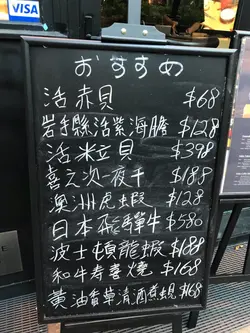 VISA
おすすめ
活赤貝 $68
岩手縣活紫海膽 $128
活粒貝 $398
喜之次一夜干 $188
澳洲虎蝦 $128
日本飛騨牛 $580
波士頓龍蝦 $188
和牛寿喜燒 $168
黃油香草清酒煮蜆 $168